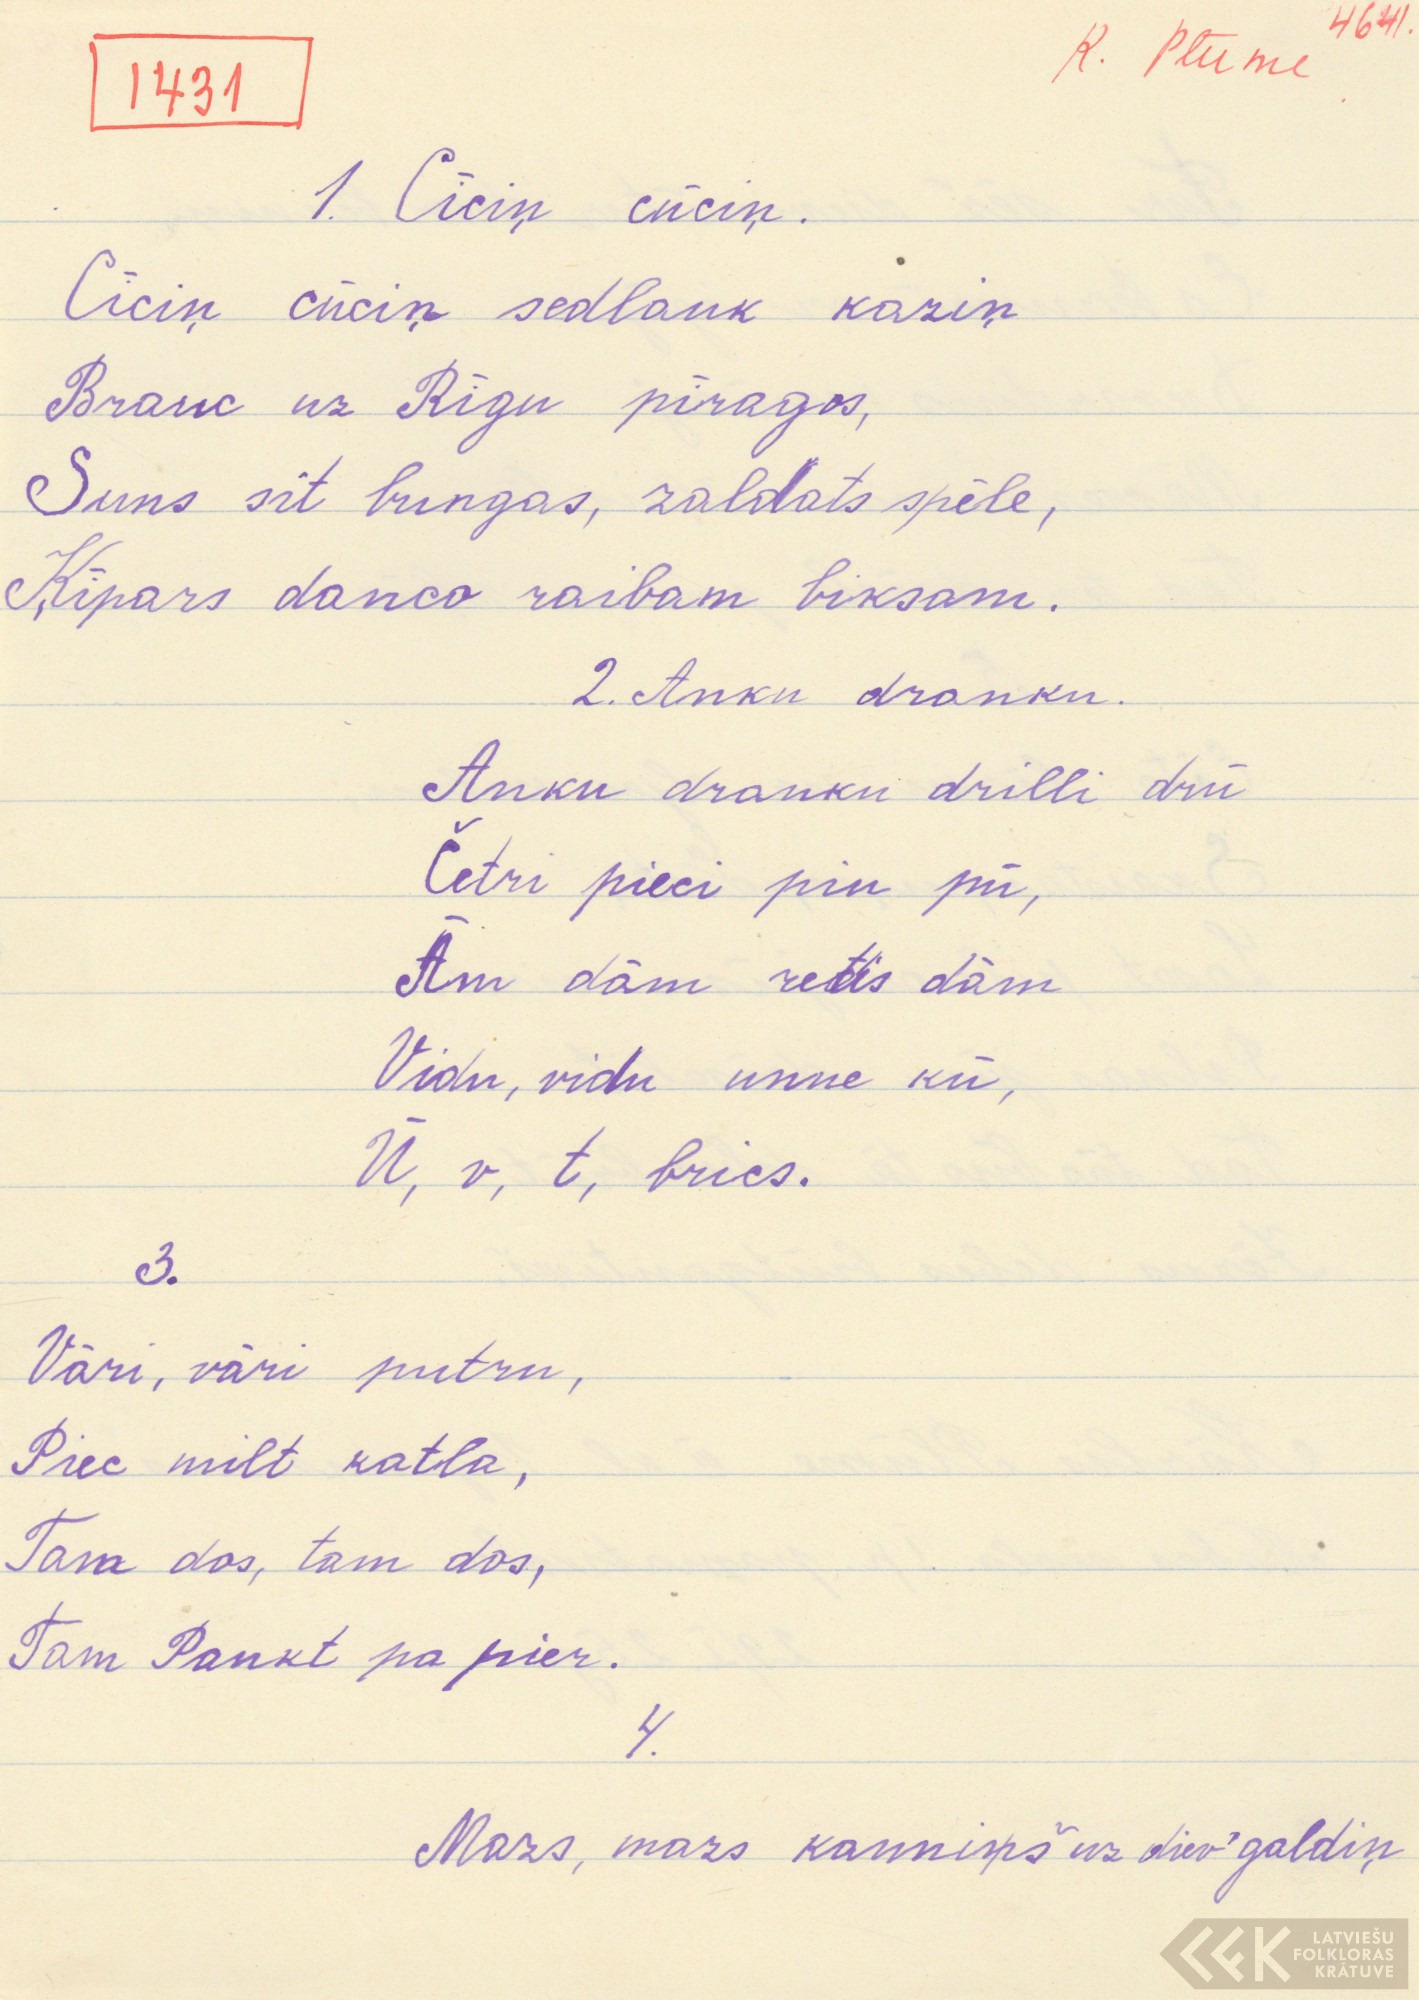 1431
K. Plūme 4641.
1. Cīciņ cūciņ.
Cīciņ cūciņ sedlauk kaziņ
Brauc uz Rīgu pīragos,
Suns sit bungas, zaldats spēle,
Ķīpars danco raibam biksam.
2. Anku dranku.
Anku dranku drilli drū
Četri pieci piu pū,
Ām dām dām
Vidu, vidu unne kū,
Ū, v, t, brics.
3.
Vāri, vāri putru,
Piec milt katla,
Tam dos, tam dos,
Tam Paukt pa pier.
4.
Mazs, mazs kanniņš uz diev' galdiņ
LATVIEŠU
FOLKLORAS
KRĀTUVE